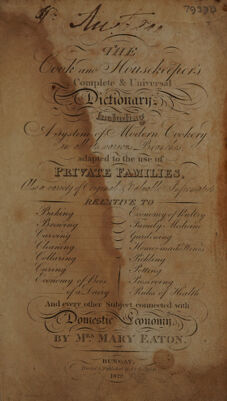 79390
THE
Cook and Housekeeper's
Complete & Universal
Dictionary;
Including
A System of Modern Cookery
in all its various Branches,
adapted to the use of
PRIVATE FAMILIES.
Also a variety of Original & Valuable Information
RELATIVE TO
Baking
Brewing
Carving
Cleaning
Collaring
Curing
Economy of Bees
of a Dairy
Economy of Poultry
Family Medicine
Gardening
Home-made Wines
Pickling
Potting
Preserving
Rules of Health
And every other Subject connected with
Domestic Economy.
BY Mrs MARY EATON.
BUNGAY.